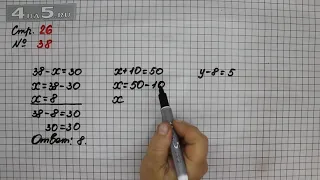 4 FOR 5
Стр. 26
№ 38
38-х=30
х=38-30
х=8
38-8=30
30=30
Ответ: 8.
х+10=50
х=50-10
х
у-8=5